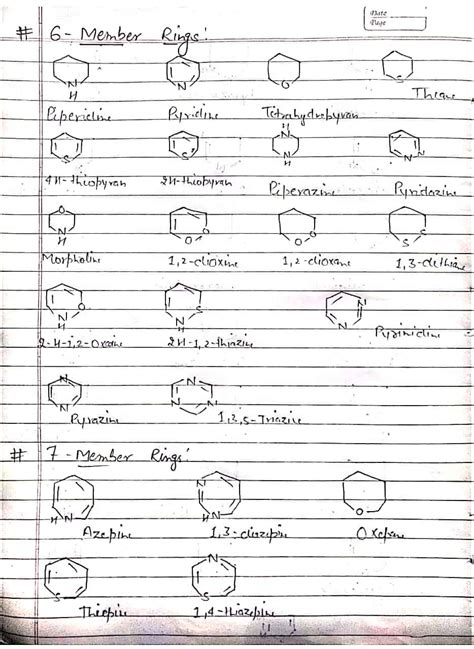 Date
Page
# 6 - Member Rings:
N H N O S
Piperidine Pyridine Tetrahydropyran Thiane
S S H N N H N N
4H-thiopyran 2H-thiopyran Piperazine Pyridazine
O N H O O O O S S
Morpholine 1,2-dioxine 1,2-dioxane 1,3-dithiane
N H O N H S N N
2-H-1,2-Oxazine 2H-1,2-thiazine Pyrimidine
N N N N N
Pyrazine 1,3,5-Triazine
# 7 - Member Rings:
HN N HN O
Azepine 1,3-diazepine Oxepane
S N S
Thiepine 1,4-thiazepine